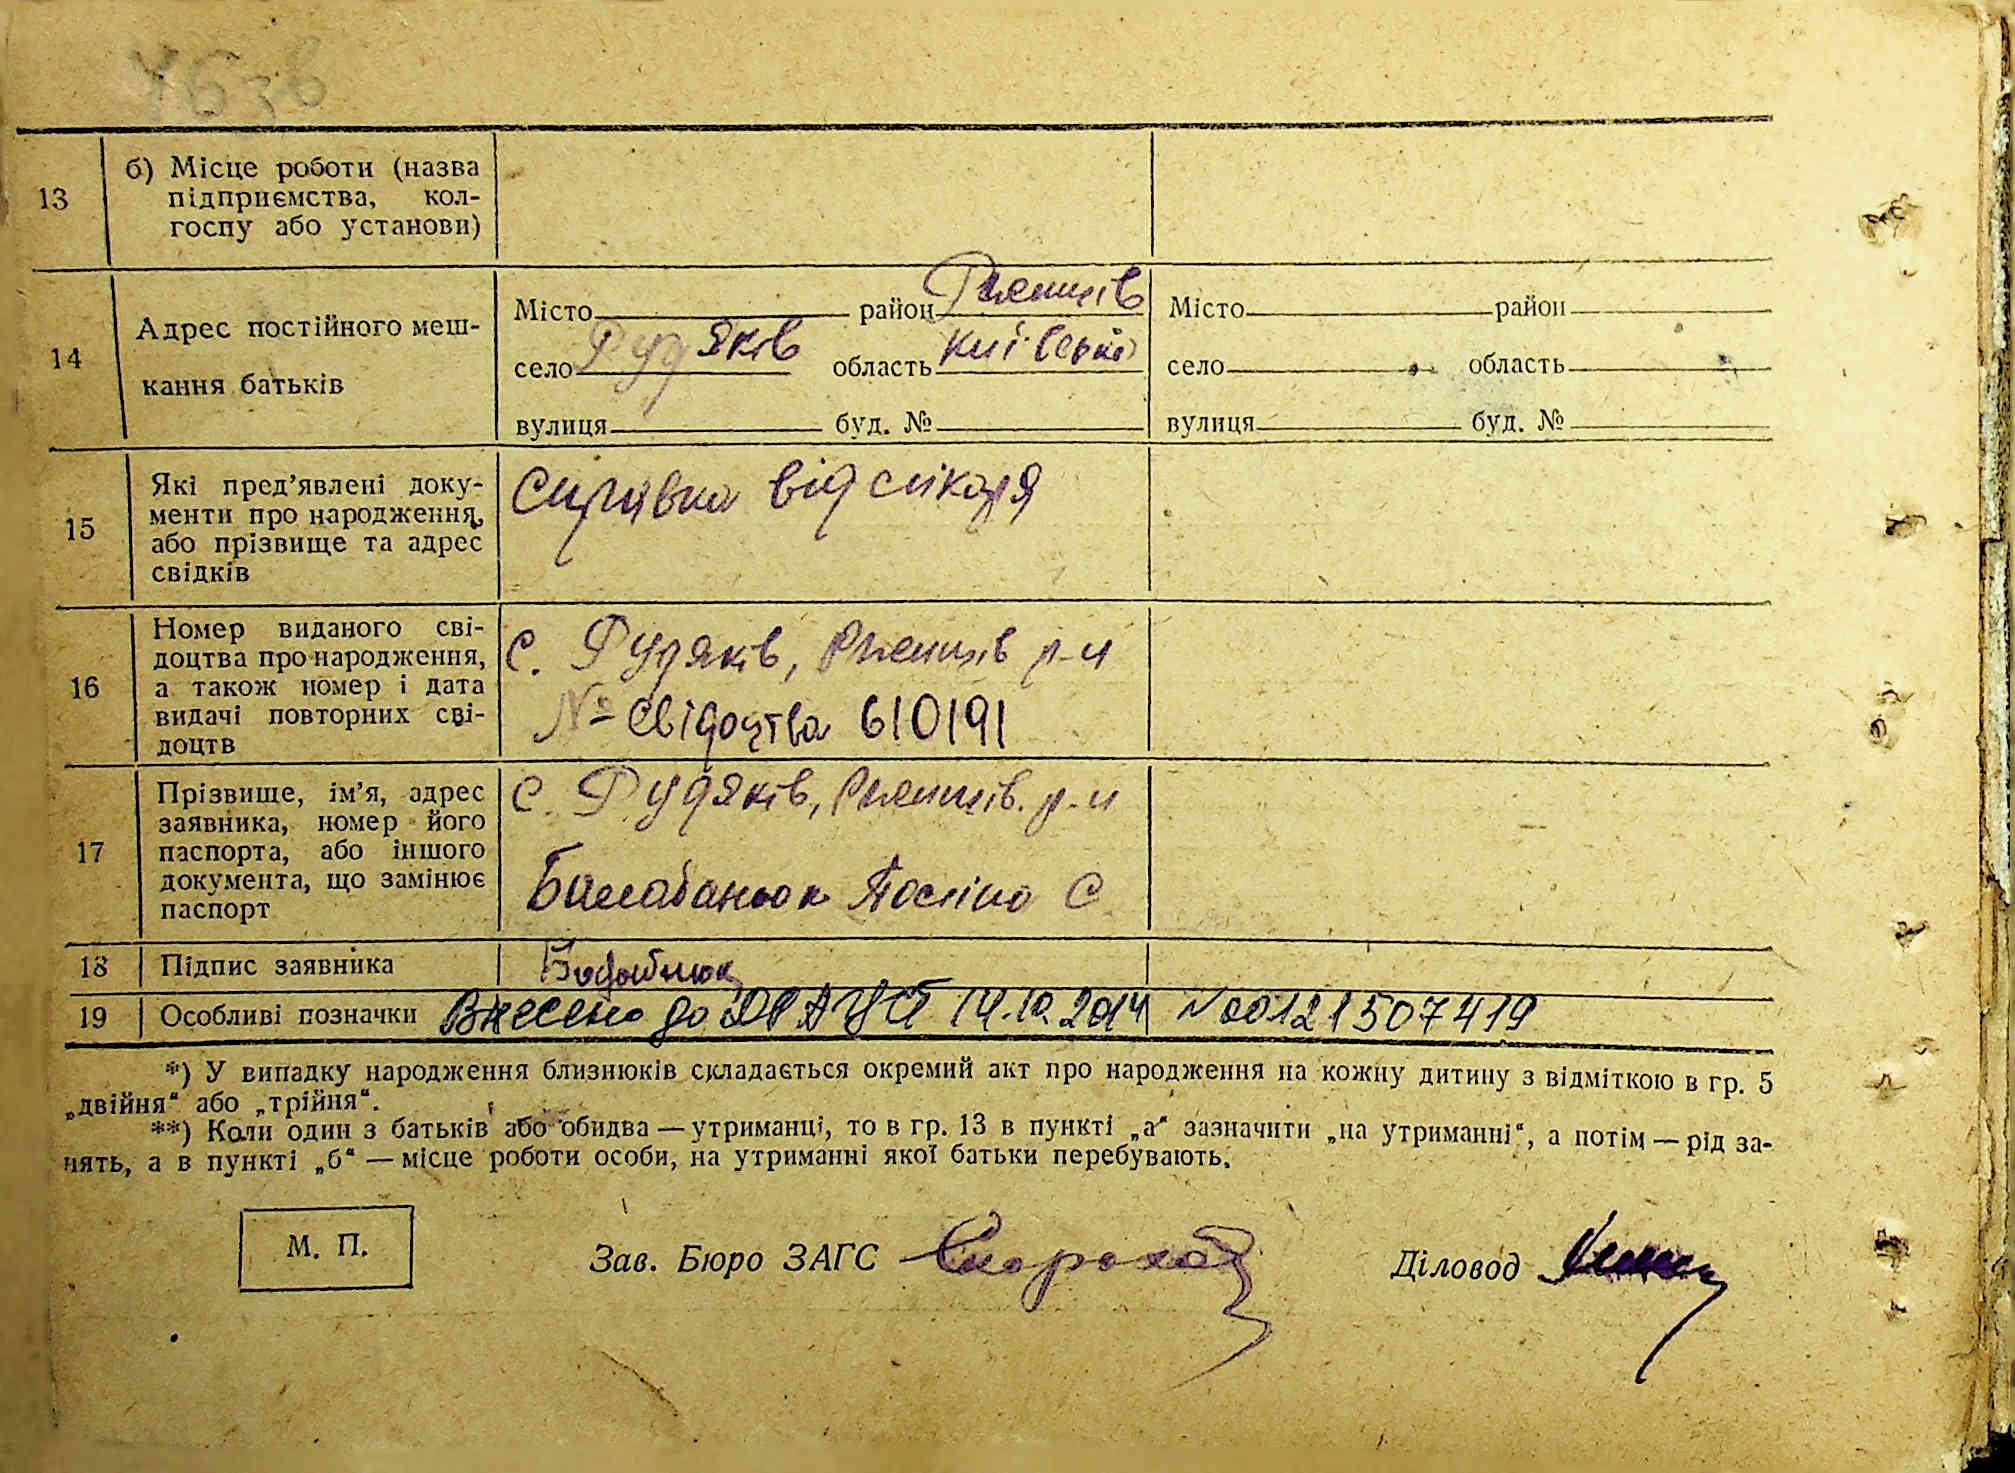 13
б) Місце роботи (назва
підприємства, кол-
госпу або установи)
14
Адрес постійного меш-
кання батьків
Місто район Ржищів
село Рудяків область Київська
вулиця буд. №
Місто район
село область
вулиця буд. №
15
Які пред’явлені доку-
менти про народження,
або прізвище та адрес
свідків
Справка від лікаря
16
Номер виданого сві-
доцтва про народження,
а також номер і дата
видачі повторних сві-
доцтв
с. Рудяків, Ржищів р-н
№ свідоцтва 610191
17
Прізвище, ім’я, адрес
заявника, номер його
паспорта, або іншого
документа, що замінює
паспорт
с. Рудяків, Ржищів. р-н
Балабанюк С
18
Підпис заявника
19
Особливі позначки
Внесено до ДРАЦСГ 14.10.2014 №00121507419
*) У випадку народження близнюків складається окремий акт про народження на кожну дитину з відміткою в гр. 5
„двійня“ або „трійня“.
**) Коли один з батьків або обидва — утриманці, то в гр. 13 в пункті „а“ зазначити „на утриманні“, а потім — рід за-
нять, а в пункті „б“ — місце роботи особи, на утриманні якої батьки перебувають.
М. П.
Зав. Бюро ЗАГС
Діловод